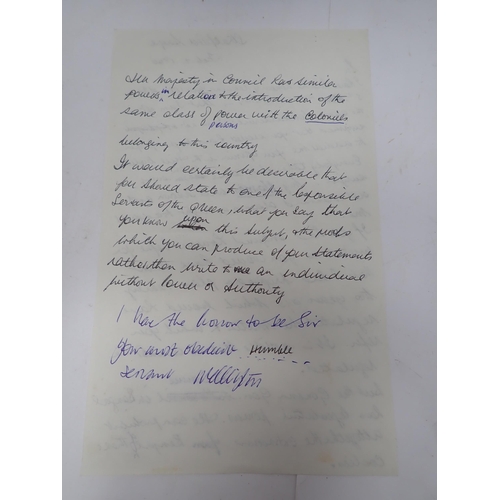 Her Majesty in Council has similar
powers in relation to the introduction of the
same class of power with the Colonies
persons
belonging to this country
It would certainly be desirable that
you should state to one of the Responsible
Servants of the Queen, what you say that
you know upon this subject, & the Proofs
which you can produce of your Statements
rather than write to an individual
without Power or Authority
I have the honor to be Sir
Your most obedient Humble
Servant Wellington